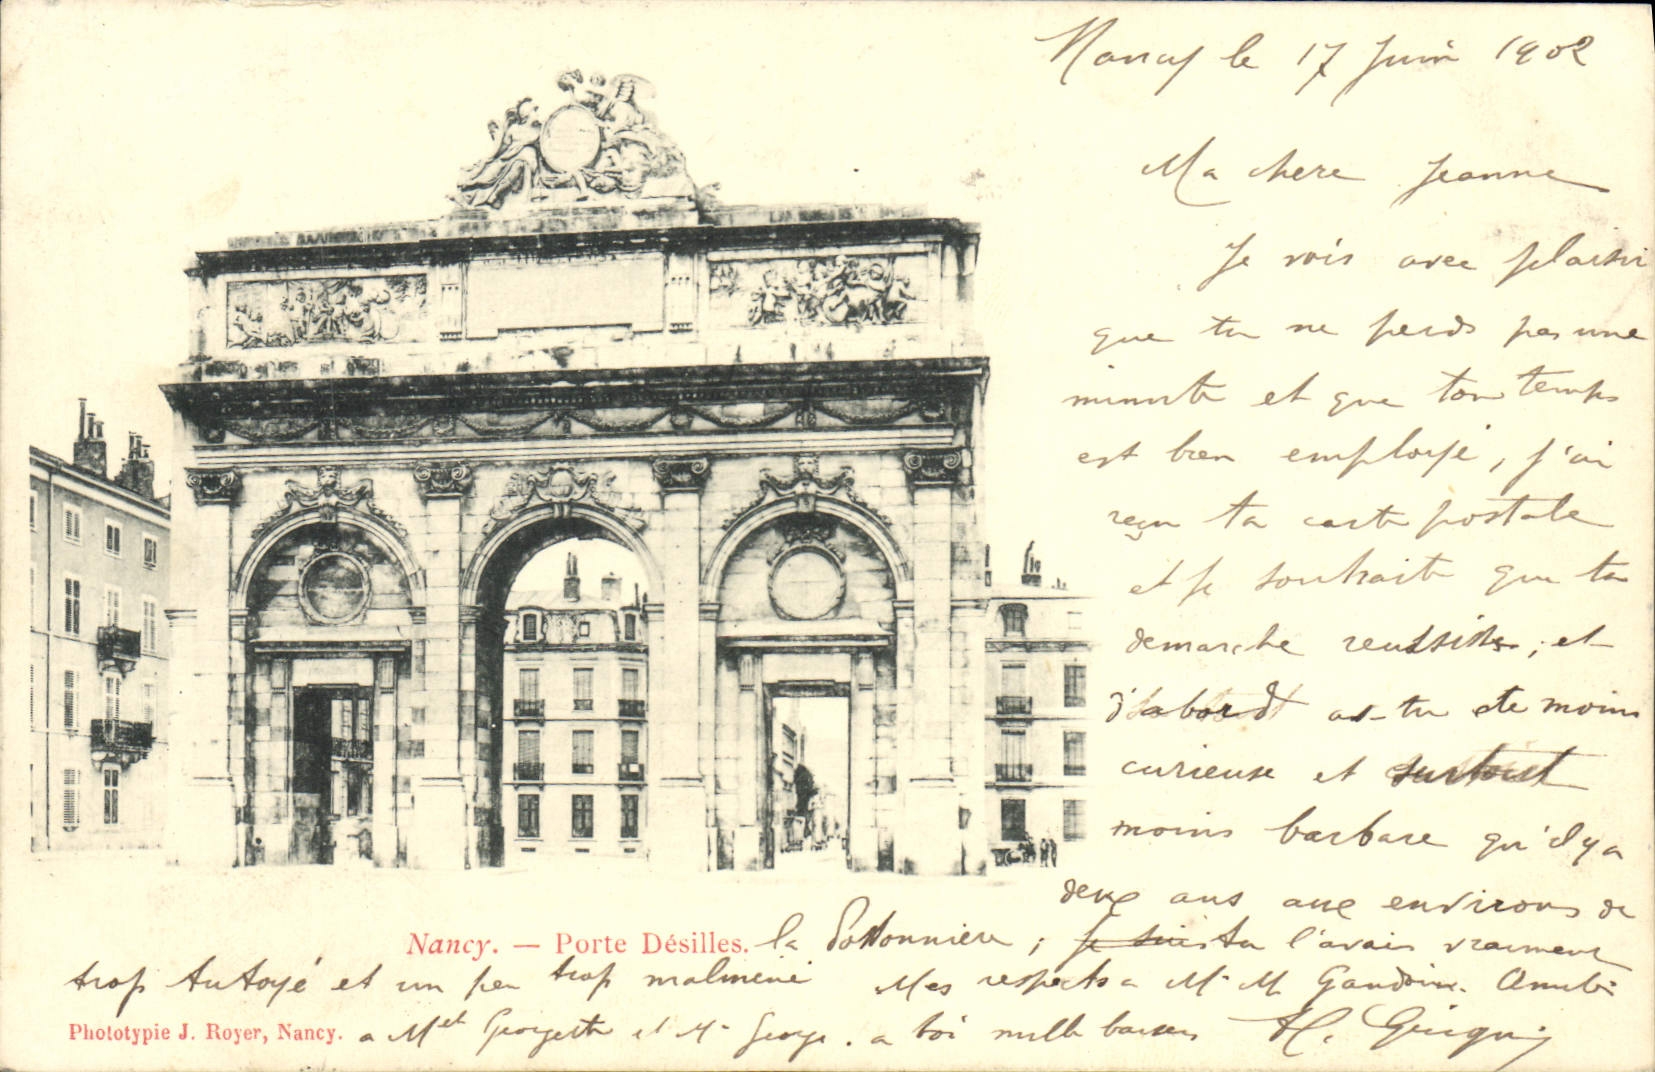 Nancy le 17 Juin 1902
Ma chere Jeanne
Je vois avec plaisir
que tu ne perds pas une
minute et que ton temps
est bien employé, j'ai
reçu ta carte postale
et je souhaite que ta
demarche reussisse, et
d'abord as-tu ete moins
curieuse et surtout
moins barbare qu'il y a
deux ans aux environs de
la ; je suis tu l'avais vraiment
trop tutoyé et un peu trop malmené Mes respects a Mr M Gaudoin. Amitiés
a Melle Georgette et Mr George. a toi mille baisers H.
Nancy. — Porte Désilles.
Phototypie J. Royer, Nancy.